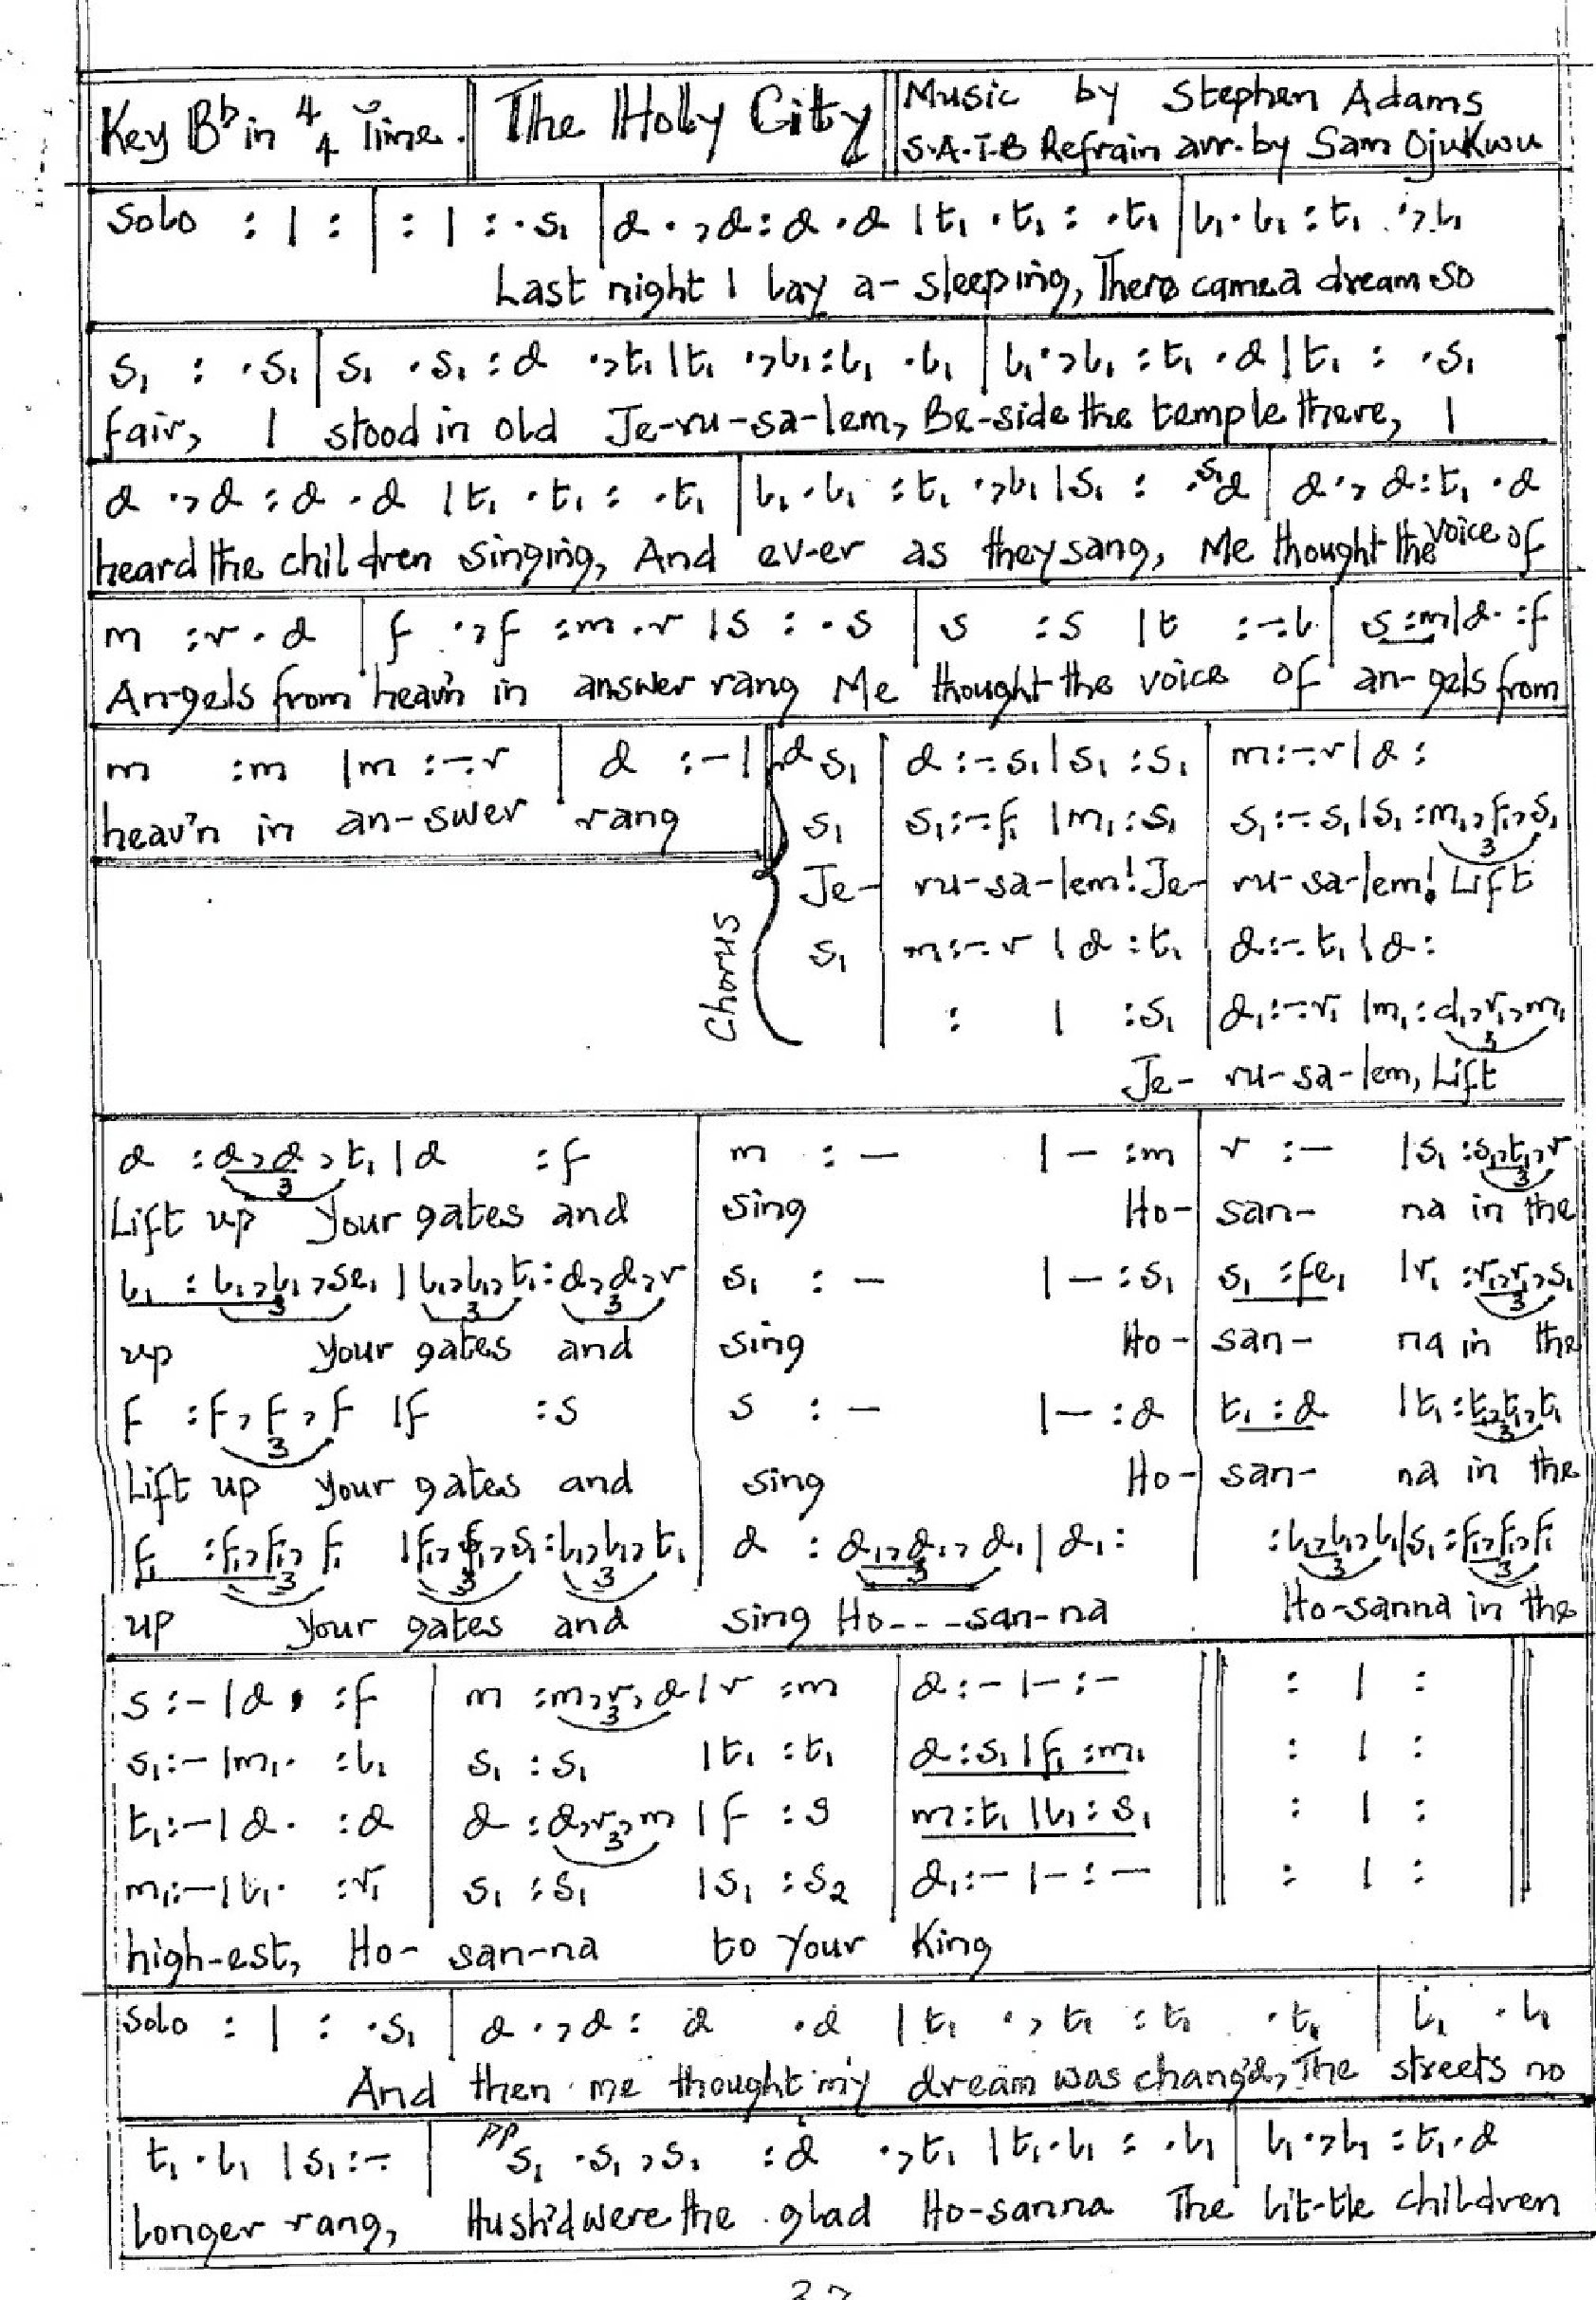 Key B♭ in 4/4 Time.
The Holy City
Music by Stephen Adams
S.A.T.B Refrain arr. by Sam Ojukwu
Solo : | : | : | : .s₁ | d .,d : d .d | t₁ .t₁ : .t₁ | l₁.l₁ : t₁ .,l₁
Last night I lay a- sleeping, There came a dream so
s₁ : .s₁ | s₁ .s₁ : d .,t₁ | t₁ .,l₁ : l₁ .l₁ | l₁.,l₁ : t₁ .d | t₁ : .s₁
fair, I stood in old Je-ru-sa-lem, Be-side the temple there, I
d .,d : d .d | t₁ .t₁ : .t₁ | l₁.l₁ : t₁ .,l₁ | s₁ : .s₁d | d., d : t₁ .d
heard the children singing, And ev-er as they sang, Me thought the voice of
m : r . d | f ., f : m .r | s : . s | s : s | t : -. l | s : m | d. : f
An-gels from heav'n in answer rang Me thought the voice of an-gels from
m : m | m : -. r | d : - | d s₁ | d : -. s₁ | s₁ : s₁ | m : -. r | d :
heav'n in an-swer rang
Chorus
s₁ | s₁ : -. f₁ | m₁ : s₁ | s₁ : -. s₁ | s₁ : m₁,f₁,s₁
3
Je- ru-sa-lem! Je- ru-sa-lem! Lift
s₁ | m : -. r | d : t₁ | d : -. t₁ | d :
: | : s₁ | d₁ : -. r₁ | m₁ : d₁,r₁,m₁
3
Je- ru-sa-lem, Lift
d : d,d,t₁ | d : f | m : - | - : m | r : - | s₁ : s₁,t₁,r
3 3
Lift up your gates and sing Ho- san- na in the
l₁ : l₁,l₁,se₁ | l₁,l₁,t₁ : d,d,r | s₁ : - | - : s₁ | s₁ : fe₁ | r₁ : r₁,r₁,s₁
3 3 3 3
up your gates and sing Ho- san- na in the
f : f,f,f | f : s | s : - | - : d | t₁ : d | t₁ : t₁,t₁,t₁
3 3
Lift up your gates and sing Ho- san- na in the
f₁ : f₁,f₁,f₁ | f₁,f₁,s₁ : l₁,l₁,t₁ | d : d₁,d₁,d₁ | d₁ : | : l₁,l₁,l₁ | s₁ : f₁,f₁,f₁
3 3 3 3 3 3
up your gates and sing Ho---san-na Ho-sanna in the
s : - | d . : f | m : m,r,d | r : m | d : - | - : - || : | : ||
3
s₁ : - | m₁. : l₁ | s₁ : s₁ | t₁ : t₁ | d : s₁ | f₁ : m₁ || : | : ||
t₁ : - | d. : d | d : d,r,m | f : s | m : t₁ | l₁ : s₁ || : | : ||
3
m₁ : - | l₁. : r₁ | s₁ : s₁ | s₁ : s₂ | d₁ : - | - : - || : | : ||
high-est, Ho- san-na to your King
Solo : | : .s₁ | d .,d : d .d | t₁ ., t₁ : t₁ .t₁ | l₁ .l₁
And then me thought my dream was chang'd, The streets no
t₁ . l₁ | s₁ : -. | pp s₁ .s₁,s₁ : d .,t₁ | t₁.l₁ : .l₁ | l₁.,l₁ : t₁.d
longer rang, Hush'd were the glad Ho-sanna The lit-tle children